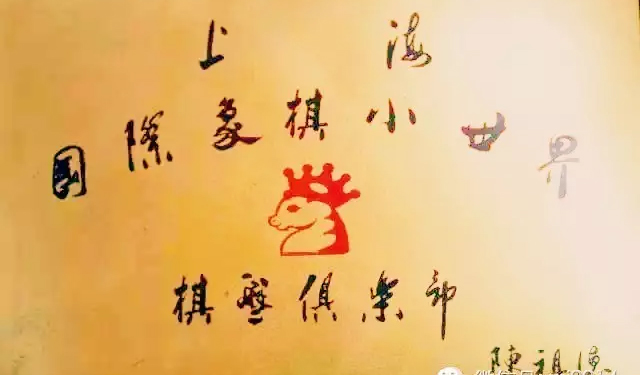 上海
国際象棋小世界
棋盤俱樂部
陳祖德